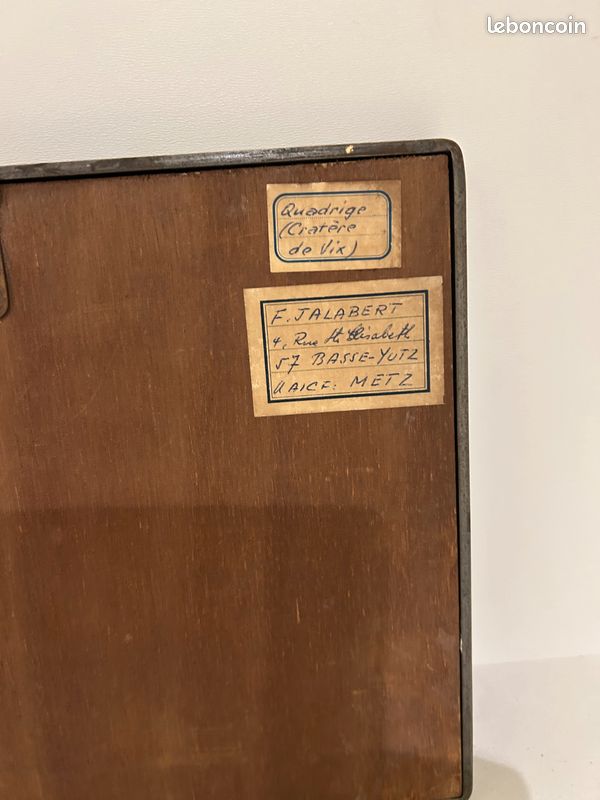 leboncoin
Quadrige
(Cratère
de Vix)
F. JALABERT
4, Rue Ste Elisabeth
57 BASSE-YUTZ
UAICF: METZ